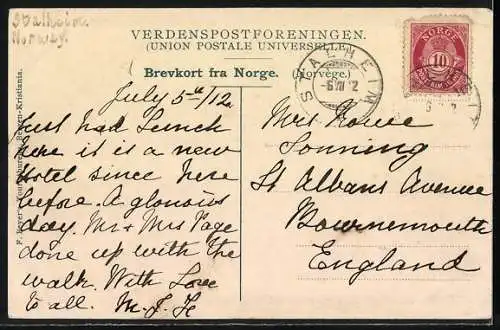 Stalheim
Norway.
VERDENSPOSTFORENINGEN.
(UNION POSTALE UNIVERSELLE)
Brevkort fra Norge. (Norvège.)
NORGE
10
STALHEIM
-6 VII 12
July 5th/12
Just had Lunch
here it is a new
Hotel since here
before. A glorious
day. Mr & Mrs Page
done up with the
walk. With Love
to all. M.J.H
Miss Rowe
Sonning
St Albans Avenue
Bournemouth
England
Bergen-Kristiania.